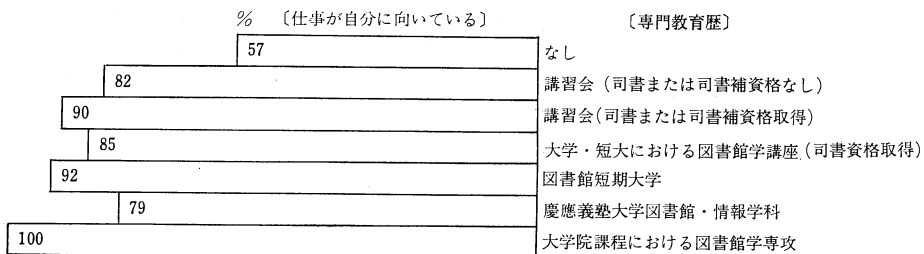 % 〔仕事が自分に向いている〕 〔専門教育歴〕
57 なし
82 講習会 (司書または司書補資格なし)
90 講習会(司書または司書補資格取得)
85 大学・短大における図書館学講座(司書資格取得)
92 図書館短期大学
79 慶應義塾大学図書館・情報学科
100 大学院課程における図書館学専攻